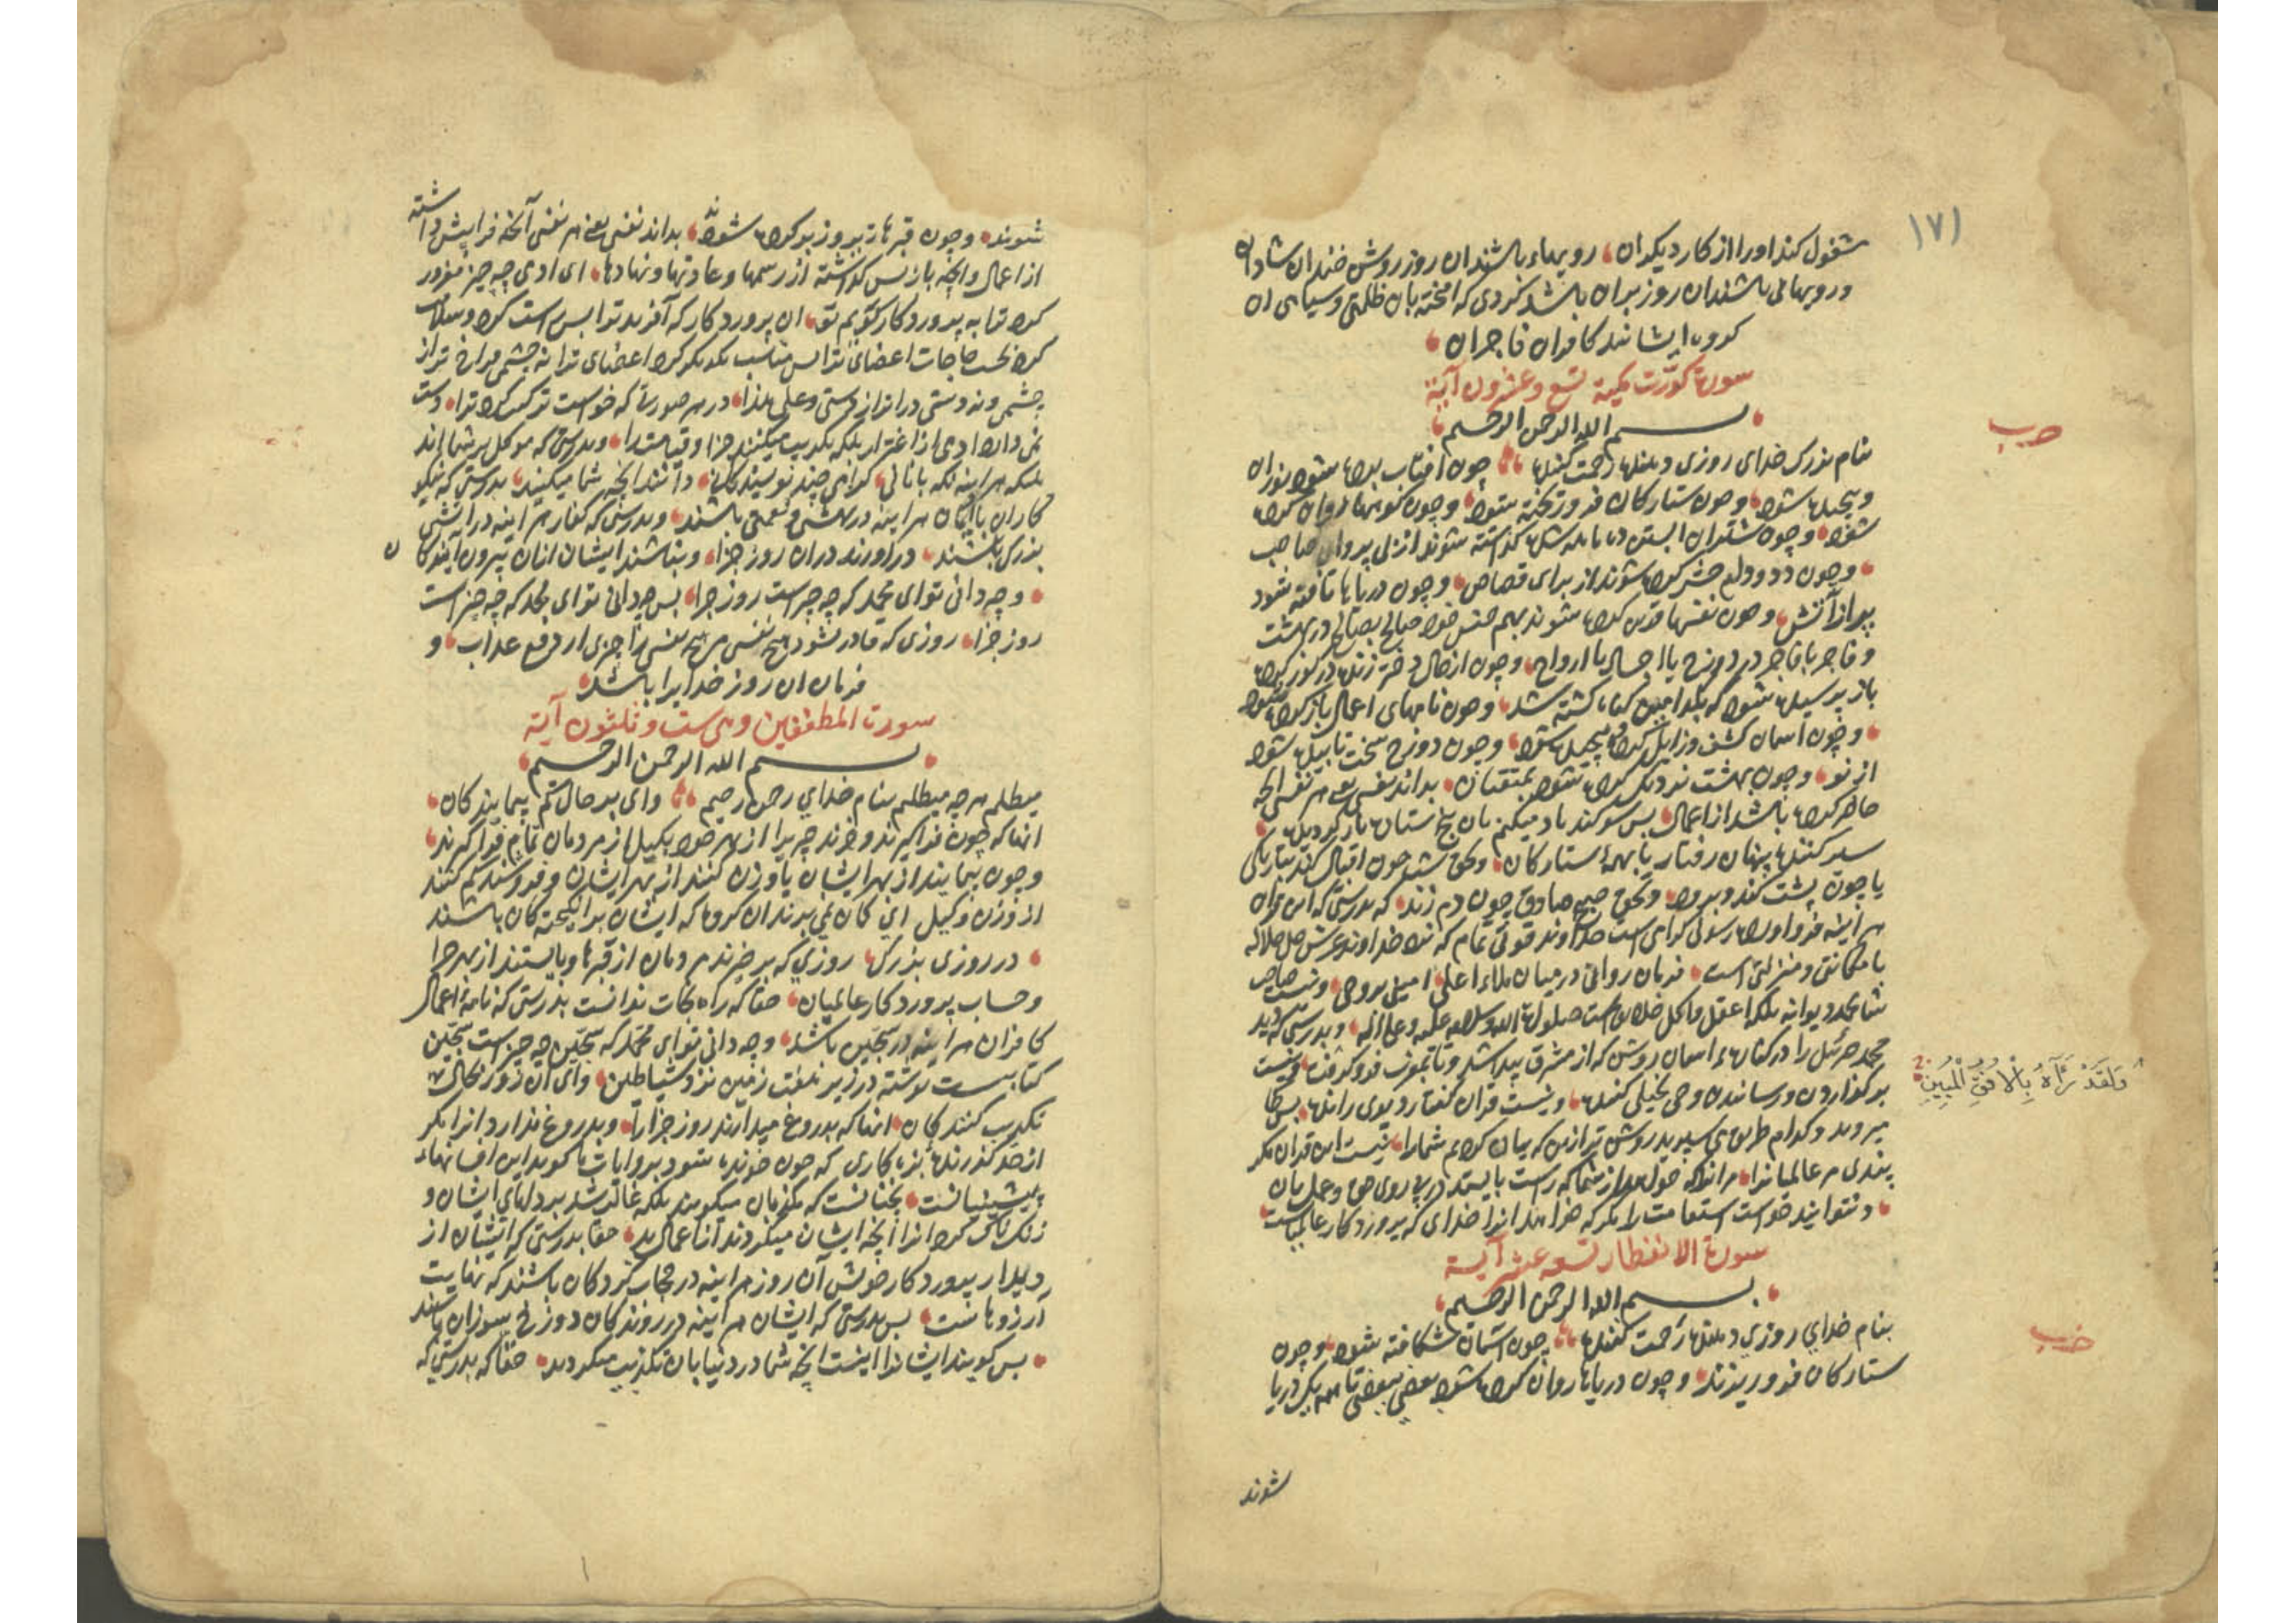 ١٧١
مشغول کند اورا از کار دیکران رویهاء باشند ان روز روشن خندان شادان
و رویهائی باشند ان روز بران باشد کردی که امخته بان ظلمتی و سیاهی ان
کروه ایشانند کافران فاجران
سورة کورت مکیة تسع وعشرون آیة
بسم الله الرحمن الرحیم
حزب
بنام بزرک خدای روزی دهنده رحمت کننده چون افتاب برده شود نوران
و پیچیده شود و چون ستارکان فرو ریخته شود و چون کوهها روان کرده
شود و چون شتران ابستن ده ماهه شده کذاشته شوند از بی پروای صاحب
و چون دد و دام حشر کرده شوند از برای قصاص و چون دریاها تافته شود
پر از آتش و چون نفسها قرین کرده شوند بهم جنس خود صالح بصالح در بهشت
و فاجر با فاجر در دوزخ یا اجساد با ارواح و چون از حال دختر زنده در کور کرده
باز پرسیده شود که بکدامین کناه کشته شد و چون نامهای اعمال باز کرده شود
و چون اسمان کشف و زایل کرده و پیچیده شود و چون دوزخ سخت تابیده شود
از نو و چون بهشت نزدیک کرده شود بمتقیان بداند نفسی یعنی هر نفسی انچه
حاضر کرده باشد از اعمال پس سوکند یاد میکنم بان پنج ستاره باز کردیده
سیر کننده پنهان رفتار یا بهمهٔ ستارکان و بحق شب چون اقبال کند بتاریکی
یا چون پشت کند و برود و بحق صبح صادق چون دم زند که بدرستی که این قران
هر اینه فرو اورده رسولی کرامی است خداوند قوتی تمام که نزد خداوند عرش جل جلاله
با مکانتی و منزلتی است فرمان روائی در میان ملاء اعلی امینی بر وحی و نیست صاحب
شما محمد دیوانه بلکه اعقل و اکمل خلایق است صلوة الله وسلامه علیه وعلی اله و بدرستی که دید
محمد جبرئیل را در کنارهء اسمان روشن که از مشرق پیدا شد و تا بمغرب فرو کرفت و نیست
وَلَقَدْ رَآهُ بِالْأُفُقِ الْمُبِينِ
بر کذاردن و رسانیدن وحی بخیلی کننده و نیست قران کفتار دیوی رانده پس کجا
میروید و کدام طریق می سپرید روشن تر ازین که بیان کردیم شمارا نیست این قران مکر
پندی مر عالمیانرا مر انرا که خواهد از شما که راست بایستد در پی روی حق و عمل بان
و نتوانید خواست استقامت را مکر که خواهد انرا خدای که پروردکار عالمیانست
سورة الانفطار تسعه عشر آیة
بسم الله الرحمن الرحیم
حزب
بنام خدای روزی دهنده رحمت کننده چون آسمان شکافته شود و چون
ستارکان فرو ریزند و چون دریاها روان کرده شود بعضی ببعضی تا همه یک دریا
شوند
شوند و چون قبرها زیر و زبر کرده شوند بداند نفسی یعنی هر نفسی آنچه فرا پیش داشته
از اعمال و انچه باز پس کذاشته از رسمها و عادتها و نهادها ای ادمی چه چیز مغرور
کرد ترا به پروردکار کریم تو ان پروردکار که آفرید ترا پس راست کرد و سلامت
کرد بحسب حاجات اعضای ترا پس متناسب یکدیکر کرد اعضای ترا نه چشمی فراخ تر از
چشمی و نه دستی دراز تر از دستی و علی هذا در هر صورتی که خواست ترکیب کرد ترا دست
نمی دارد ادمی از اغترار بلکه تکذیب میکنند جزا و قیامت را و بدرستی که موکل بر شما اند
ملائکه هر اینه نکهبانانی کرامی چند نویسندکان دانند انچه شما میکنید بدرستی که نیکو
کاران با ایمان هر اینه در بهشتی و نعمتی باشند و بدرستی که کفار هر اینه در آتشی
بزرک باشند در اورند دران روز جزا و نباشند ایشان ازان بیرون آیندکان
و چه دانی تو ای محمد که چه چیز است روز جزا پس چه دانی تو ای محمد که چه چیز است
روز جزا روزی که قادر نشود هیچ نفسی مر هیچ نفسی را چیزی از دفع عذاب و
فرمان ان روز خدایرا باشد
سورت المطففین و هی ست و ثلثون آیة
بسم الله الرحمن الرحیم
میطلبم هر چه میطلبم بنام خدای رحمن رحیم وای بر حال کم پیمایندکان
انها که چون فرا کیرند و خرند چیزیرا از بهر خود بکیل از مردمان تمام فرا کیرند
و چون پیمایند از بهر ایشان یا وزن کنند از بهر ایشان و فروشند کم کنند
از وزن و کیل ای کمان نمی برند ان کروه که ایشان برانکیخته کان باشند
در روزی بزرک روزی که برخیزند مردمان از قبرها و بایستند از بهر جزا
و حساب پروردکار عالمیان حقا که راه نجات ندانست بدرستی که نامهٔ اعمال
کافران هر اینه در سجین باشد و چه دانی تو ای محمد که سجین چه چیز است سجین
کتابیست نوشته در زیر هفت زمین نزد شیاطین وای ان روز بحال
تکذیب کنندکان انها که بدروغ میدارند روز جزا را و بدروغ ندارد انرا مکر
از حد کذرنده بزه کاری که چون خوانده شود برو ایات ما کوید این افسانهاء
پیشینیانست نچنانست که مکذبان میکویند بلکه غالب شد بر دلهای ایشان و
زنک ناک کرد انرا آنچه ایشان میکردند از اعمال بد حقا بدرستی که ایشان از
دیدار پروردکار خویش آن روز هر اینه در حجاب کردکان باشند که نهایت
آرزوهاست پس بدرستی که ایشان هر اینه در روندکان دوزخ سوزان باشند
پس کویند ایشانرا اینست انچه شما در دنیا بان تکذیب میکردید حقا که بدرستی که